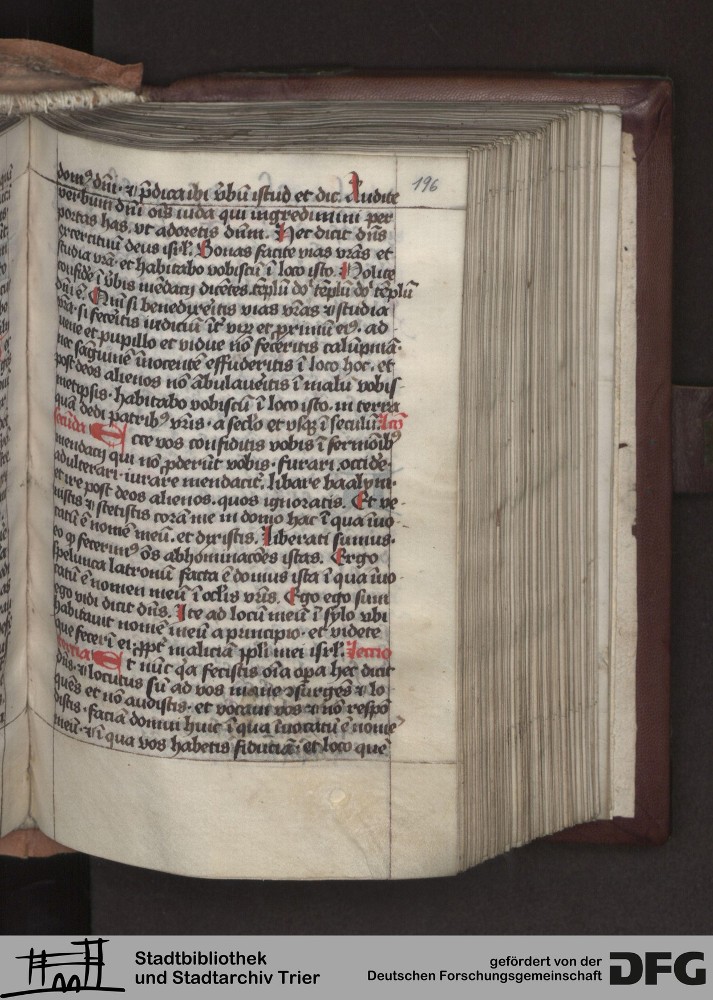 196
domꝰ dñi· ⁊ p̃dica ibi v̓bũ istud et dic. Audite
verbum dñi oĩs iuda qui ingredimini per
portas has. vt adoretis dñm. Hec dicit dñs
exercituũ deus isrl̓. Bonas facite vias vr̃as et
studia vr̃a· et habitabo vobiscũ ĩ loco isto. Nolite
confide ĩ v̓bis mẽdacij dicẽtes. tẽplũ do' tẽplũ do' tẽplũ
dñi ẽ. Qm̃ si benedixeritis vias vr̃as ⁊ studia
vr̃a· si feceritis iudiciũ ĩt̓ virũ et ꝓximũ eiꝰ· ad
uene et pupillo et vidue nõ feceritis calũpniã·
nec sãguinẽ ĩnocentẽ effuderitis ĩ loco hoc. et
post deos alienos nõ ãbulaueritis ĩ malũ vobis
metipsis· habitabo vobiscũ ĩ loco isto. in terra
quã dedi patribꝰ vr̃is· a sc̃lo et vsqꝫ ĩ seculũ. lc̃o
secũda Ecce vos confiditis vobis ĩ sermõibꝰ
mendacij qui nõ ꝓderũt vobis· furari. occide·
adulterari· iurare mendacit̓. libare baalym·
et ire post deos alienos. quos ignoratis. Et ve
nistis ⁊ stetistis corã me in domo hac ĩ qua ĩuo
catũ ẽ nomẽ meũ. et dixistis. Liberati sumus·
eo ꝙ fecerimꝰ õs abhominacões istas. Ergo
spelunca latronũ facta ẽ domus ista ĩ qua ĩuo
catũ ẽ nomen meũ ĩ oclis vr̃is. Ego ego sum
ego vidi dicit dñs. Ite ad locũ meũ ĩ sylo vbi
habitauit nomẽ meũ a principio· et videte
que fecerĩ ei ꝓpt̓ maliciã ppli mei isrl̓. Leccio
tercia Et nũc qͣ fecistis oĩa oꝑa hec dicit
dñs· ⁊ locutus sũ ad vos mane ↄsurgẽs ⁊ lo
quẽs et nõ audistis· et vocaui vos ⁊ nõ respõ
distis· faciã domui huic ĩ qua ĩuocatũ ẽ nomẽ
meũ· ⁊ ĩ qua vos habetis fiduciã· et loco quẽ
Stadtbibliothek
und Stadtarchiv Trier
gefördert von der
Deutschen Forschungsgemeinschaft
DFG